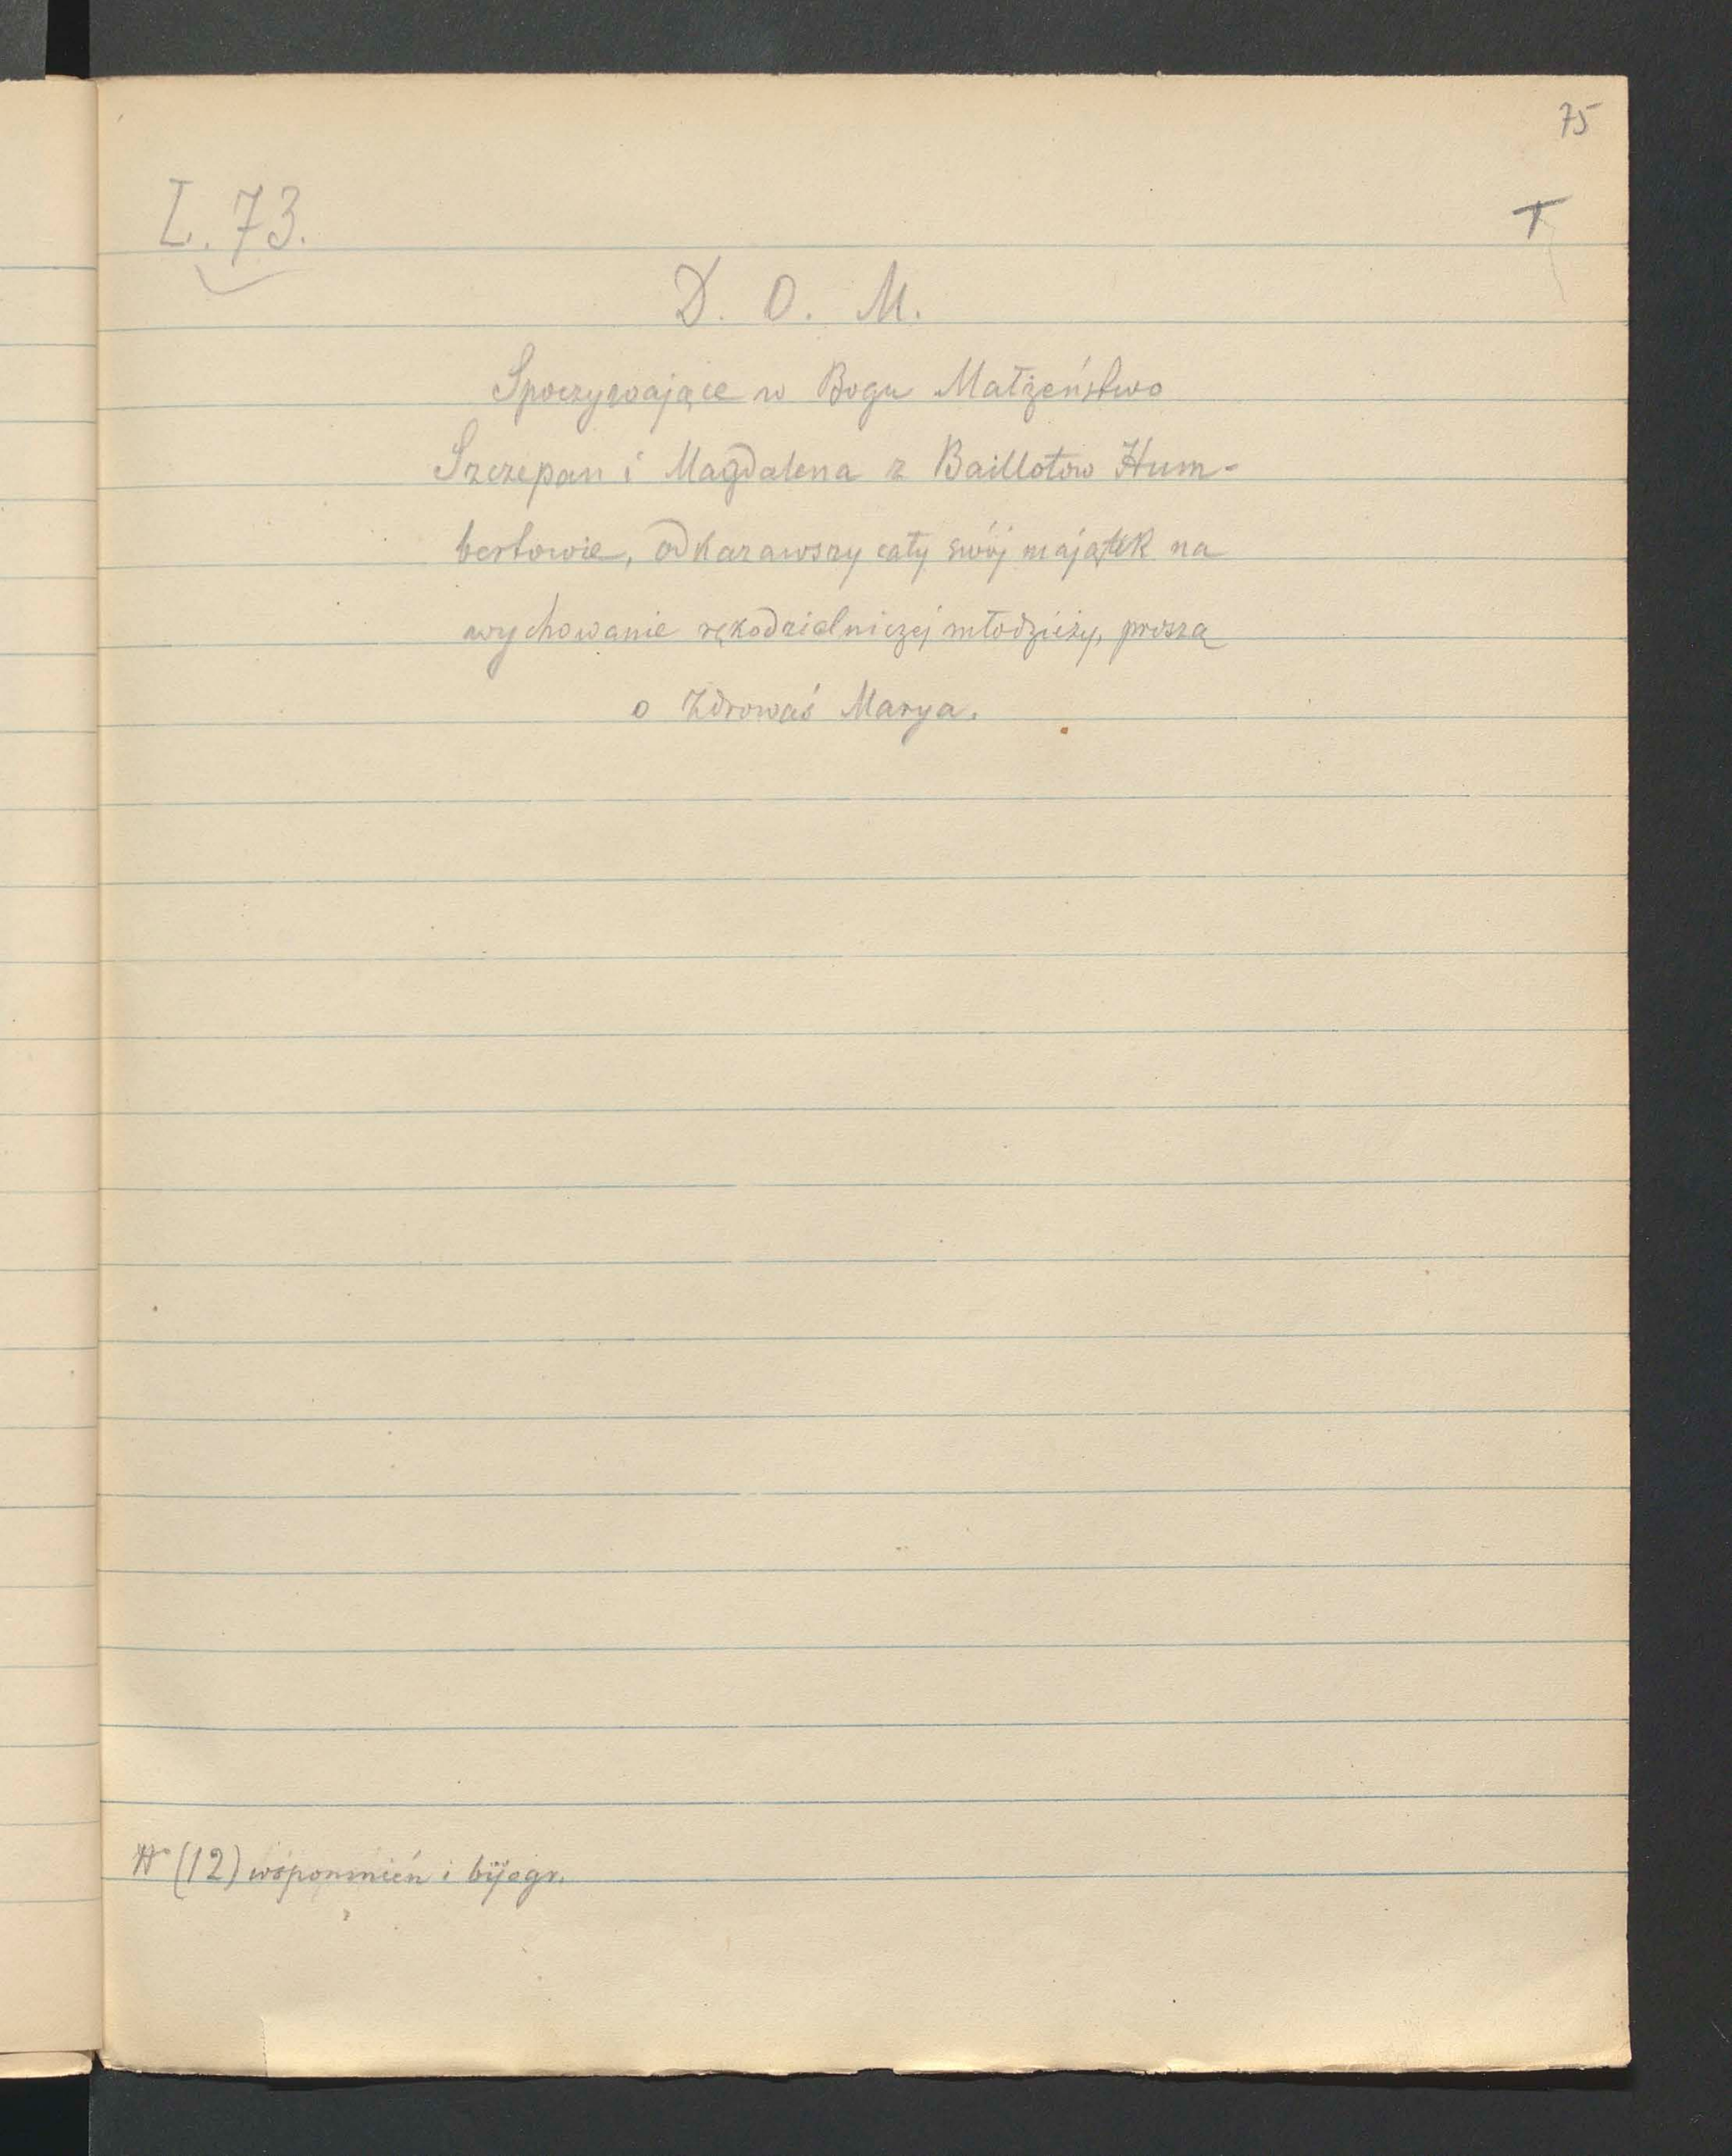 75
L. 73.
T
D. O. M.
Spoczywające w Bogu Małżeństwo
Szczepan i Magdalena z Baillotów Hum-
bertowie, odkazawszy cały swój majątek na
wychowanie rękodzielniczej młodzieży, proszą
o Zdrowaś Marya.
(12) wspomnień i bijogr.